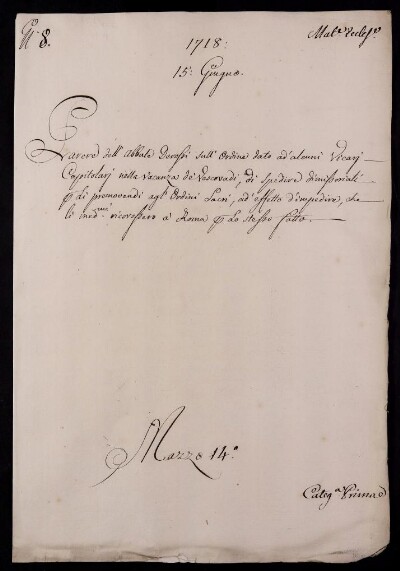 N.° 8.
Mat.e Eccles.e
1718:
15: Giugno.
Parere dell' Abbate Docossi sull' Ordine dato ad' alcuni Vicarj
Capitolarj nella vacanza de' Vescovadi, di spedire dimissoriali
p li promovendi agl' Ordini Sacri, ad' effetto d'impedire, che
li med.mi ricorressero a Roma p lo stesso fatto.
Mazzo 14.°
Categ.a Prima